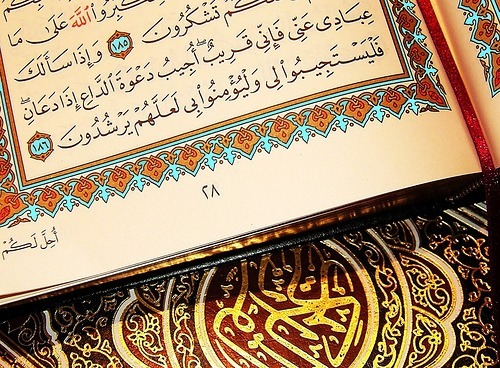 تَشْكُرُونَ
ٱللَّهَ عَلَىٰ مَا
١٨٥ وَإِذَا سَأَلَكَ
عِبَادِى عَنِّى فَإِنِّى قَرِيبٌ ۖ أُجِيبُ دَعْوَةَ ٱلدَّاعِ إِذَا دَعَانِ ۖ
فَلْيَسْتَجِيبُوا۟ لِى وَلْيُؤْمِنُوا۟ بِى لَعَلَّهُمْ يَرْشُدُونَ ١٨٦
٢٨
أُحِلَّ لَكُمْ